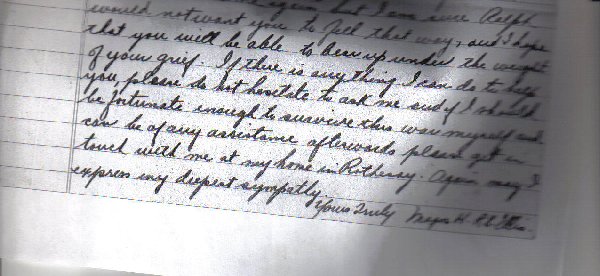 again but I am sure Ralph
would not want you to feel that way, and I hope
that you will be able to bear up under the weight
of your grief. If there is any thing I can do to help
you please do not hesitate to ask me and if I should
be fortunate enough to survive this war myself and
can be of any assistance afterwards please get in
touch with me at my home in Rothesay. Again may I
express my deepest sympathy.
Yours Truly